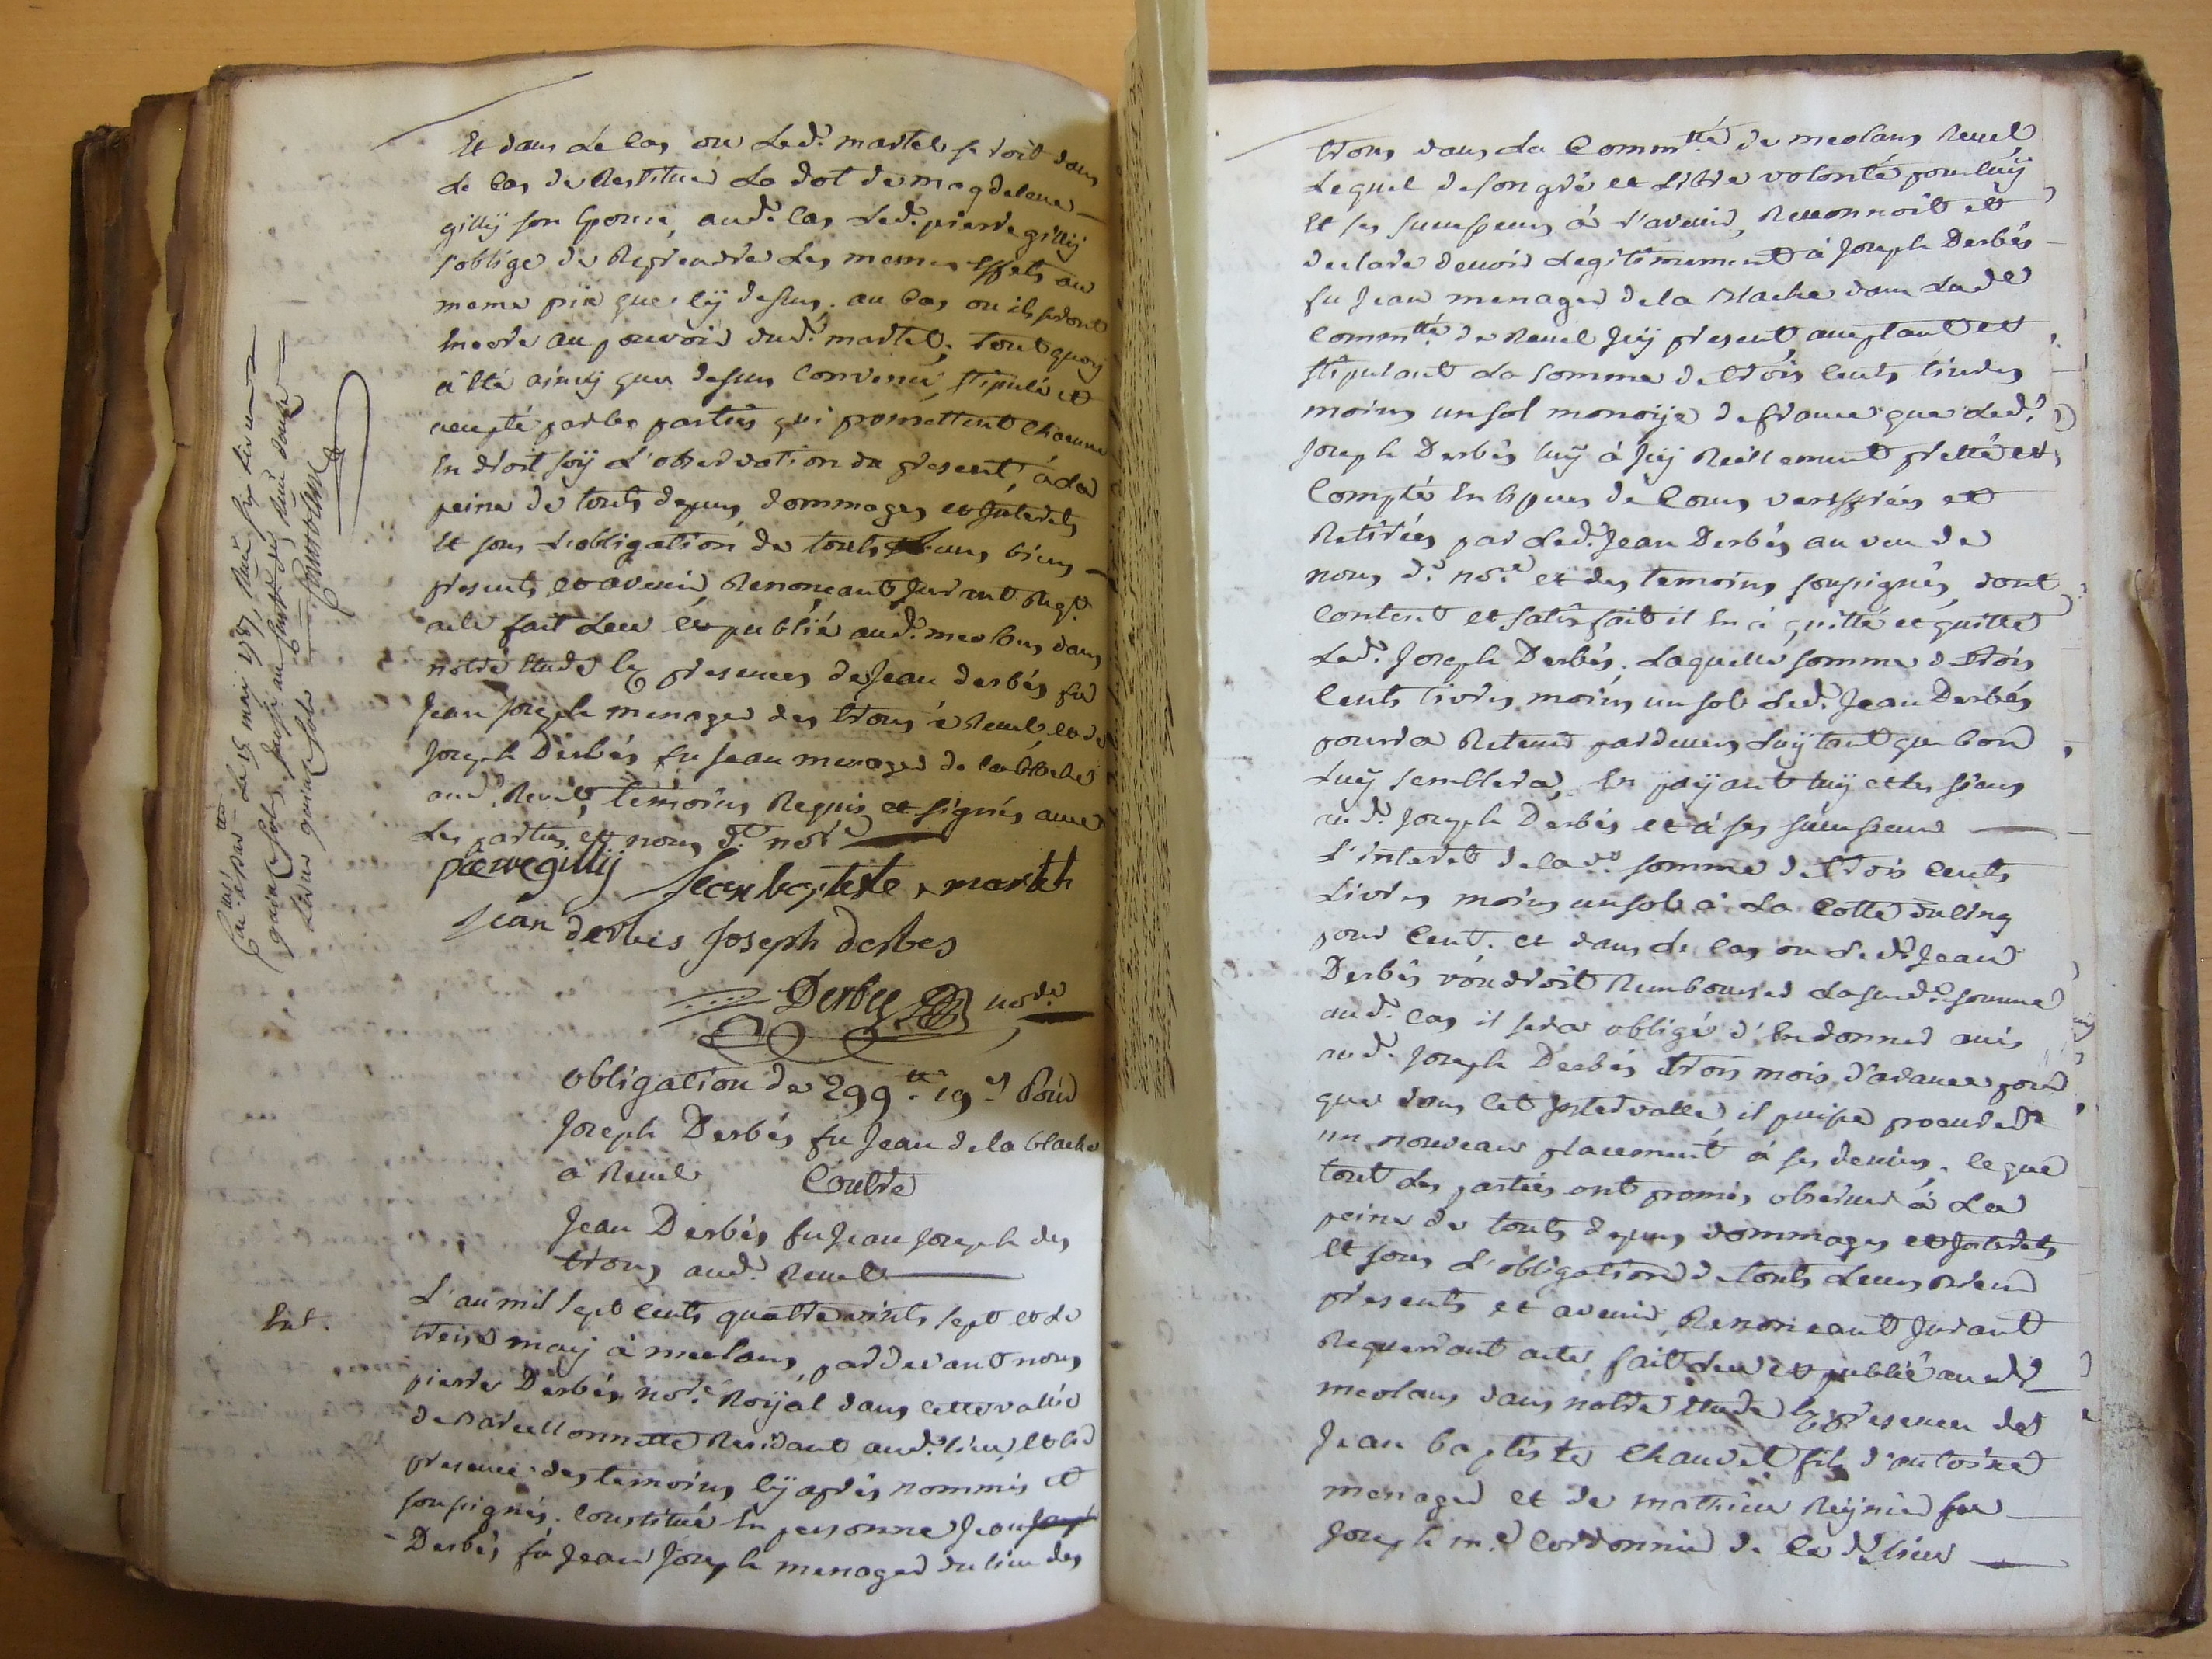 Et dans Le Cas ou Led.t martel se roit dans
Le Cas de Restituer La dot de magdelene
gillij son Epouse, aud.t Cas Led.t pierre gillij
s'oblige de Reprendre Les memes Effets au
meme prix que Cÿ dessus. au Cas ou ils seront
Encore au pouvoir dud.t martel, tout quoy
a Eté ainsÿ que dessus Convenu, stipulé et
accepté par les parties qui promettent Chacune
En droit soÿ L'observation du present, à la
peine de touts depens dommages et Interets
Et sous L'obligation de touts Leurs biens
presents et avenir, Renonceant Jurant Reqt.
acte fait Leu et publié aud.t meolans dans
notre Etude En presences de Jean derbés fu
Jean Joseph menager des trons à Revel, et de
Joseph Derbés fu Jean menager de la blache
aud.t Revel, temoins Requis et signés avec
Les parties et nous d.t nore
pierre gillij Jean baptiste martel
jean derbes Joseph derbes
Derbes nore
mi ter
Cae et par Le 15 mai 1787 Reçû six livres
quinze sols
Livres quinze sols
obligation de 299.tt 19.s Pour
Joseph Derbés fu Jean de la blache
à Revel Contre
Jean Derbés fu Jean Joseph des
trons aud.t Revel
Ext.
L'an mil sept cents quatre vints sept et Le
treise may à meolans, pardevant nous
pierre Derbés nore Roÿal dans cette valée
de Barcellonnette Residant aud.t lieu, Et En
presence des temoins Cÿ aprés nommés et
soussignés. Constitué En personne Jean Joseph
Derbés fu Jean Joseph menager du lieu des
trons dans La Comm.tté de meolans Revel
Lequel de son gré et Libre volonté pour luÿ
Et ses successeurs à L'avenir, Reconnoit et
declare devoir Legitimement à Joseph Derbés
fu Jean menager de la Blache dans Lade
Comm.tté de Revel Jcÿ present acceptant et
stipulant La somme de trois Cents Livres
moins un sol monoÿe de france que Led.t
Joseph Derbés luÿ à Jcÿ Reellement pretté et
Compté En Especes de Cours verifiées et
Retirées par Led.t Jean Derbés au veu de
nous d.t nore et des temoins soussignés, dont
Content et satisfait il En à quitté et quitte
Led.t Joseph Derbés. Laquelle somme de trois
Cents Livres moins un sol Led.t Jean Derbés
pourra Retenir pardevers Luÿ tant que bon
Luÿ semblera, En paÿant luÿ et les siens
aud.t Joseph Derbés et à ses successeurs
L'interet de lad.e somme de trois Cents
Livres moins un sol à La Cotte du Cinq
pour Cent. et dans Le Cas ou Led.t Jean
Derbés voudroit Rembourser La sud.e somme
aud.t Cas il sera obligé d'En donner avis
aud.t Joseph Derbés trois mois d'avance pour
que dans Cet Jntervalle, il puisse procurer
un nouveau placement à ses deniers, Ce que
tout Les parties ont promis observer à La
peine de touts depens dommages et Jnterets
Et sous L'obligation de touts Leurs Biens
presents et avenir, Renonceant Jurant
Requerrant acte, fait Leu et publié aud.t
meolans dans notre Etude En presences de
Jean baptiste Chauvet fils d'antoine
menager et de mathieu Reÿnier fu
Joseph m.e Cordonnier de Ce d.t lieu